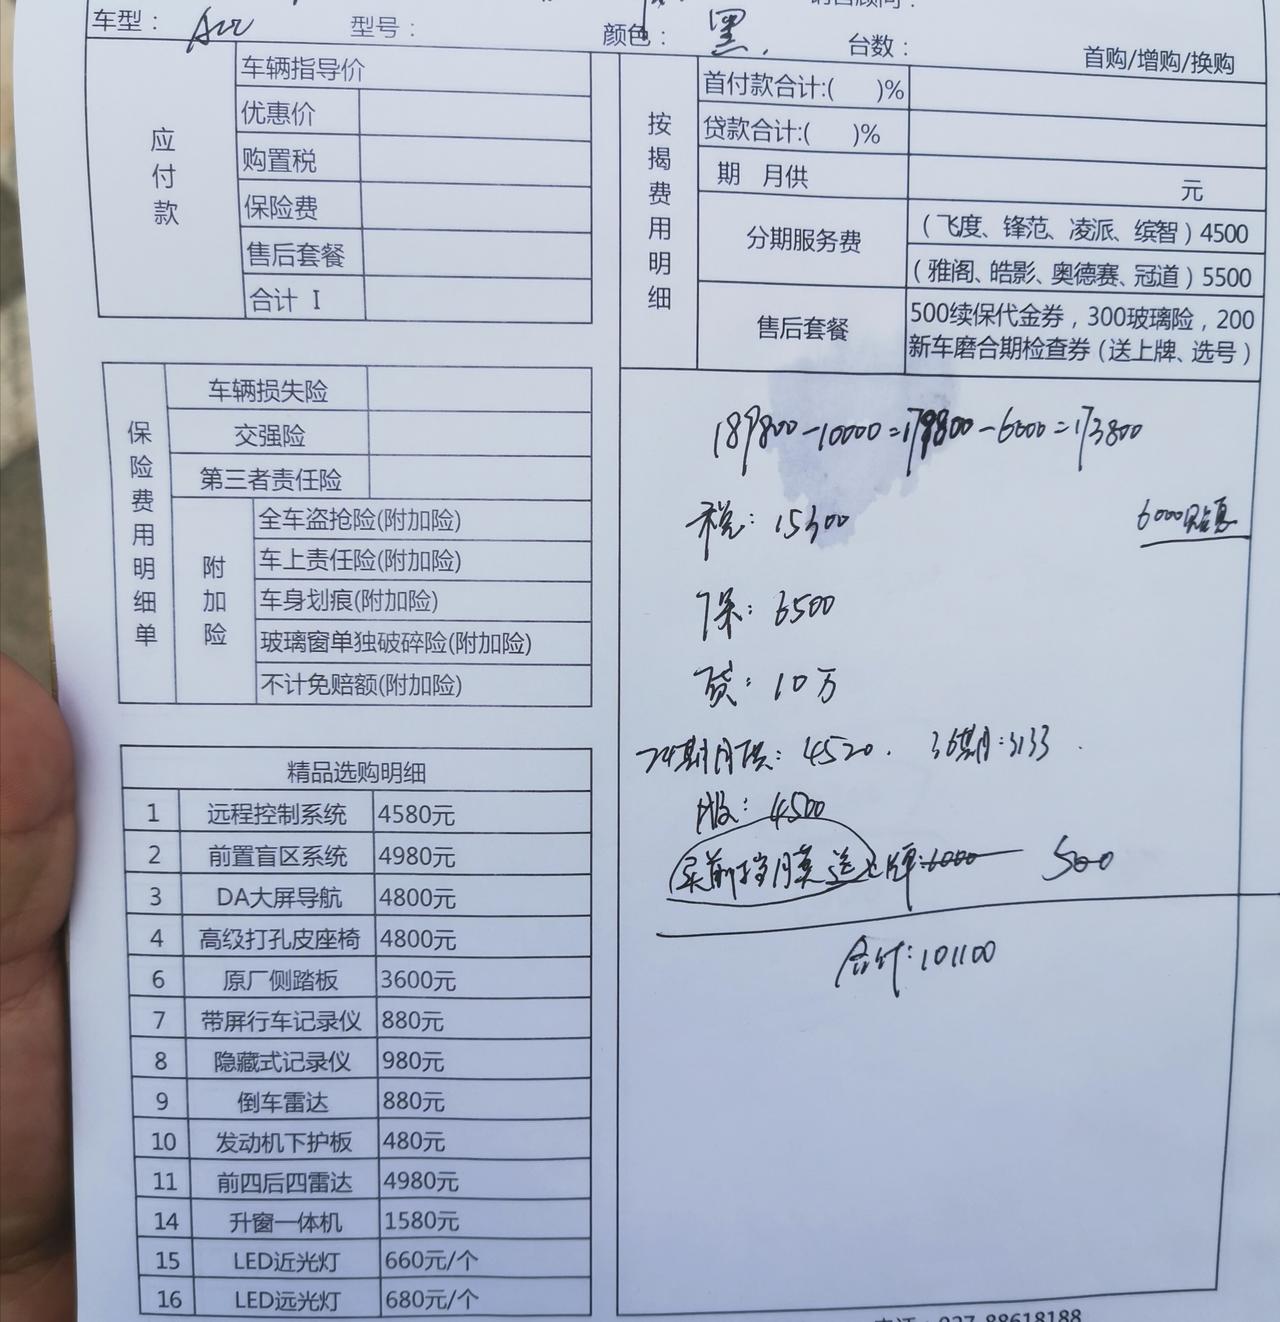 车型： Acc 型号： 颜色： 黑 台数： 首购/增购/换购
应付款
车辆指导价
优惠价
购置税
保险费
售后套餐
合计 I
按揭费用明细
首付款合计:( )%
贷款合计:( )%
期 月供 元
分期服务费
(飞度、锋范、凌派、缤智)4500
(雅阁、皓影、奥德赛、冠道)5500
售后套餐
500续保代金券，300玻璃险，200
新车磨合期检查券(送上牌、选号)
保险费用明细单
车辆损失险
交强险
第三者责任险
附加险
全车盗抢险(附加险)
车上责任险(附加险)
车身划痕(附加险)
玻璃窗单独破碎险(附加险)
不计免赔额(附加险)
精品选购明细
1 远程控制系统 4580元
2 前置盲区系统 4980元
3 DA大屏导航 4800元
4 高级打孔皮座椅 4800元
6 原厂侧踏板 3600元
7 带屏行车记录仪 880元
8 隐藏式记录仪 980元
9 倒车雷达 880元
10 发动机下护板 480元
11 前四后四雷达 4980元
14 升窗一体机 1580元
15 LED近光灯 660元/个
16 LED远光灯 680元/个
189800-10000=179800-6000=173800
税：15300
6000贴息
保：6500
贷：10万
24期月供：4520. 36期：3133.
服：4500
买前挡膜送上牌：6000 500
合计：101100